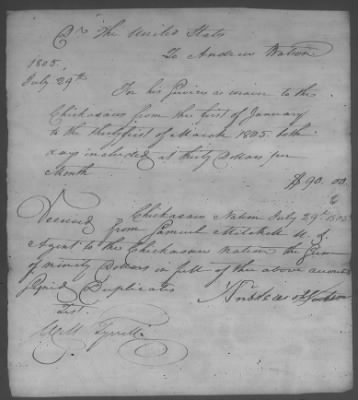 Dr The United States
To Andrew Watson
1805.
July 29th
For his services as mason to the
Chickasaws from the first of January
to the thirty first of March 1805 both
days included at thirty Dollars per
Month
$90.00
Chickasaw Nation July 29th 1805
Received from Samuel Mitchell U.S.
Agent to the Chickasaw Nation the Sum
of ninety Dollars in full of the above account
Signed Duplicates
Andrew Watson
Test.
Wm Tyrrell